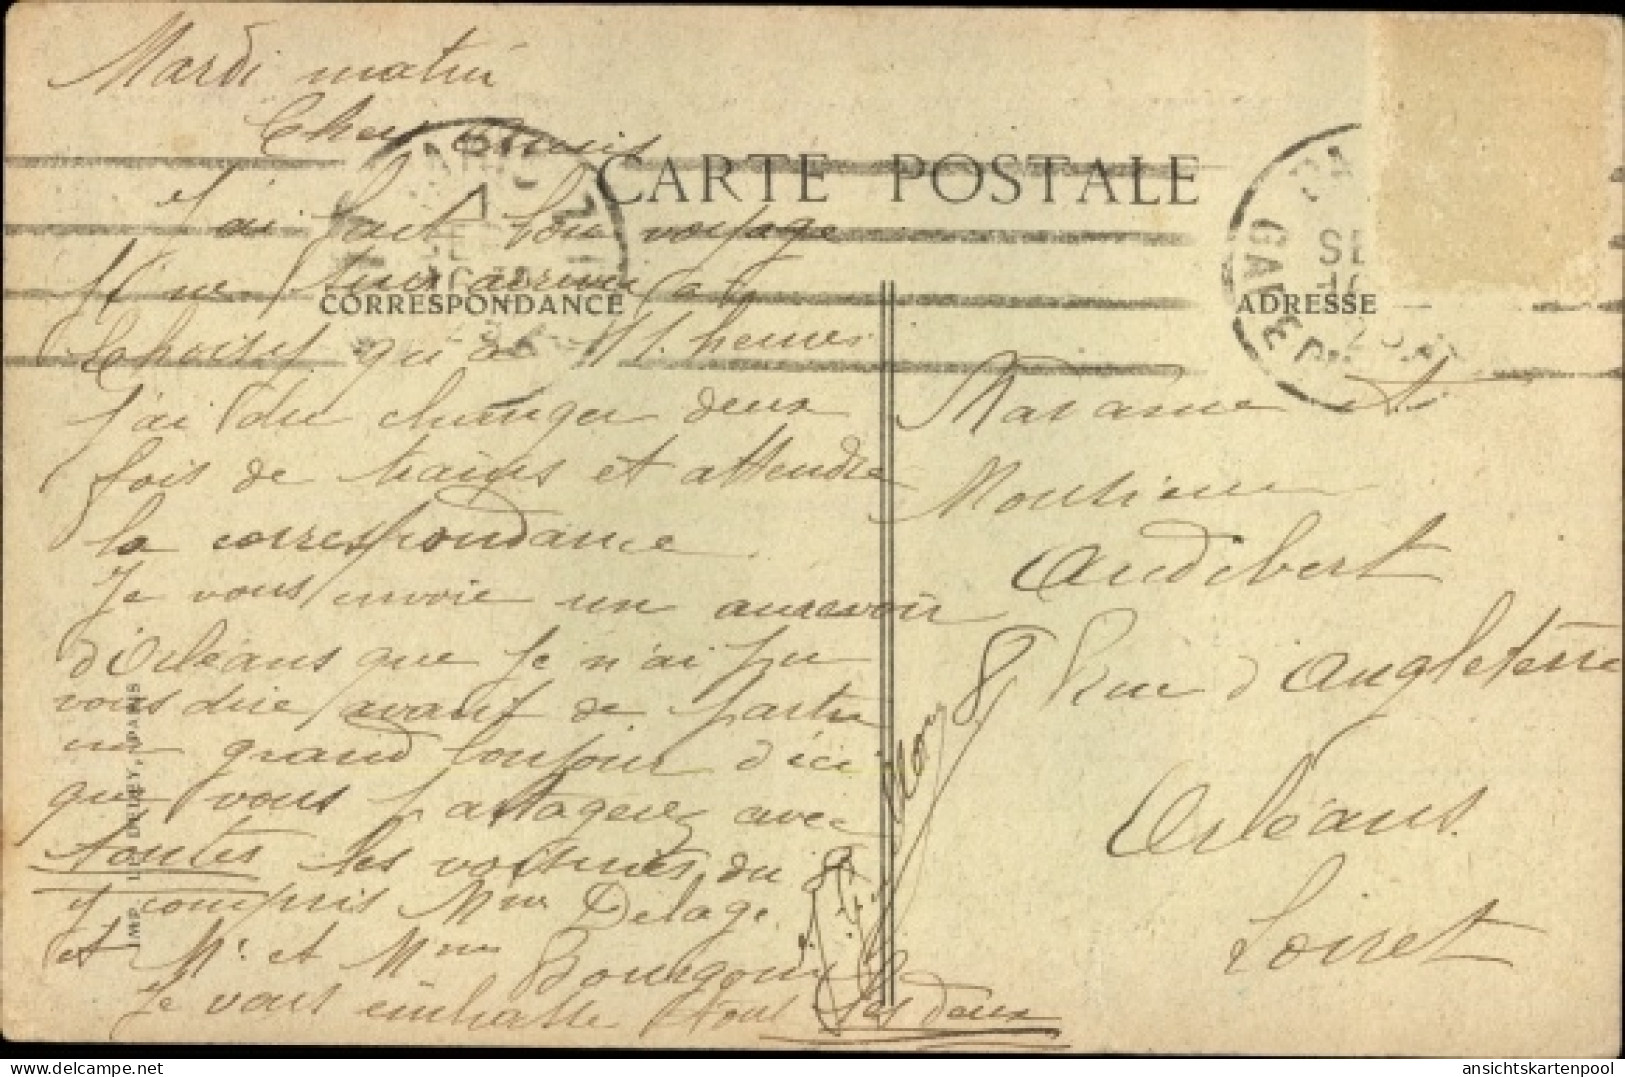 Mardi matin
Chers Amis
CARTE POSTALE
J'ai fait bon voyage
CORRESPONDANCE
Choisy qu'à 11 heures
j'ai du changer deux
fois de trains et attendre
la correspondance.
Je vous envoie un aurevoir
d'Orléans que je n'ai pu
vous dire avant de partir
un grand bonjour d'ici
que vous partagerez avec
toutes les voisines du 8
y compris Mme Delage
et Mr et Mme Bourgoin
Je vous embrasse tous les deux
IMP. PARIS
ADRESSE
GARE DU
Madame et
Monsieur
Audibert
8 Rue d'Angleterre
Orléans.
Loiret
ansichtskartenpool